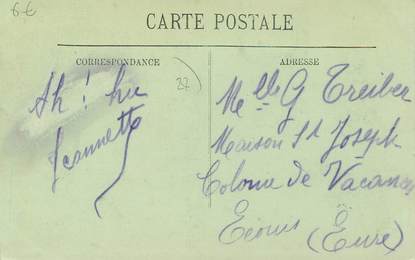 6€
CARTE POSTALE
CORRESPONDANCE
ADRESSE
Ah ! hu
Jeannette
27
Melle G Treiber
Maison St Joseph
Colonie de Vacances
Ecouis
(Eure)